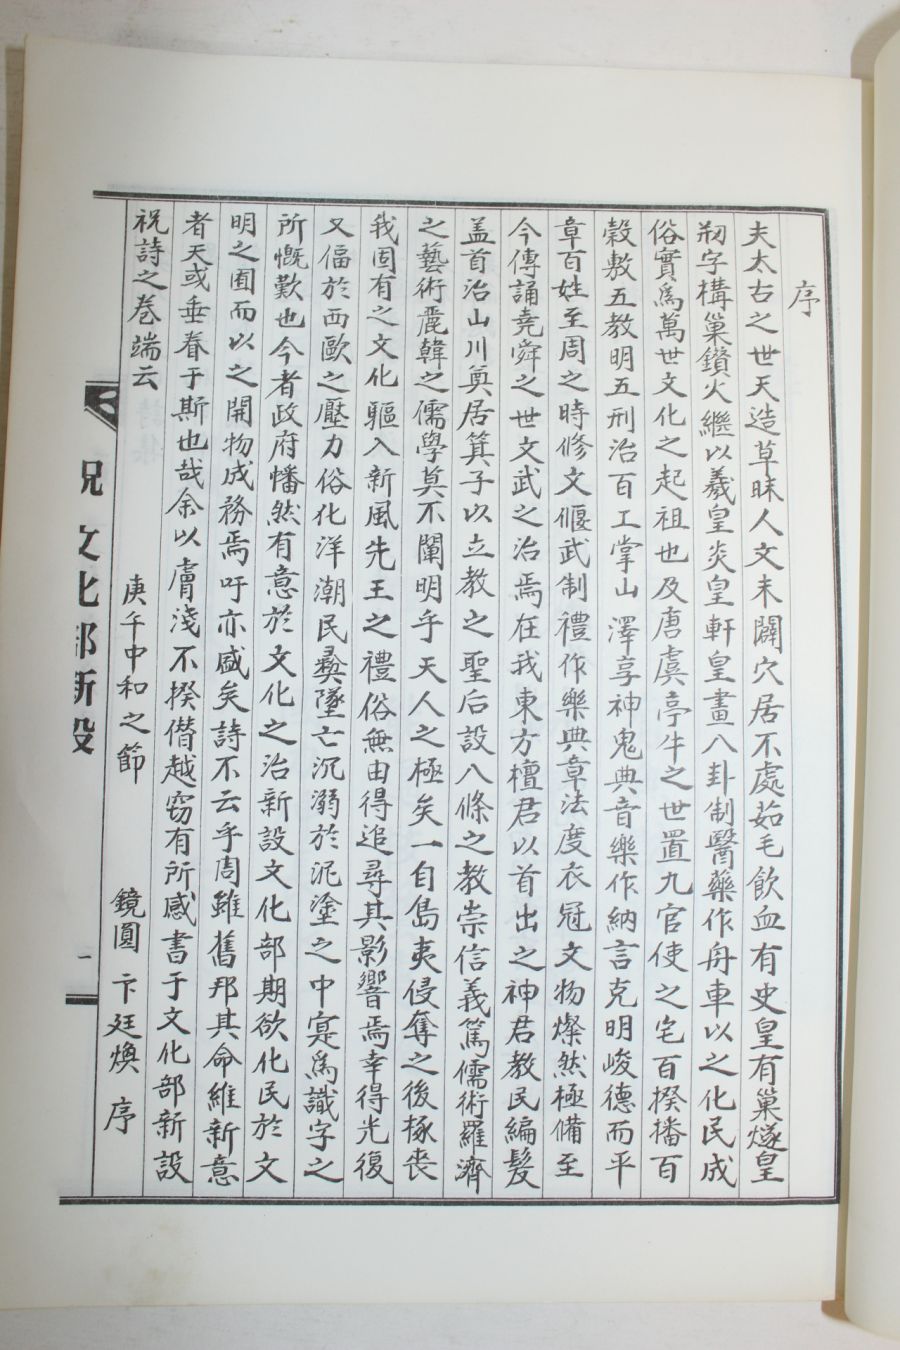 序
夫太古之世天造草昧人文未闢穴居不處茹毛飮血有史皇有巢燧皇
刱字構巢鑽火繼以羲皇炎皇軒皇畫八卦制醫藥作舟車以之化民成
俗實爲萬世文化之起祖也及唐虞亭牛之世置九官使之宅百揆播百
穀敷五敎明五刑治百工掌山澤享神鬼典音樂作納言克明峻德而平
章百姓至周之時修文偃武制禮作樂典章法度衣冠文物燦然極備至
今傳誦堯舜之世文武之治焉在我東方檀君以首出之神君敎民編髮
盖首治山川奠居箕子以立敎之聖后設八條之敎崇信義篤儒術羅濟
之藝術麗韓之儒學莫不闡明乎天人之極矣一自島夷侵奪之後椓喪
我固有之文化驅入新風先王之禮俗無由得追尋其影響焉幸得光復
又偪於西歐之壓力俗化洋潮民彜墜亡沉溺於泥塗之中寔爲識字之
所慨歎也今者政府幡然有意於文化之治新設文化部期欲化民於文
明之囿而以之開物成務焉吁亦感矣詩不云乎周雖舊邦其命維新意
者天或垂眷于斯也哉余以膚淺不揆僭越窃有所感書于文化部新設
祝詩之卷端云
庚午中和之節 鏡圓 卞廷煥 序
祝文化部新設
一